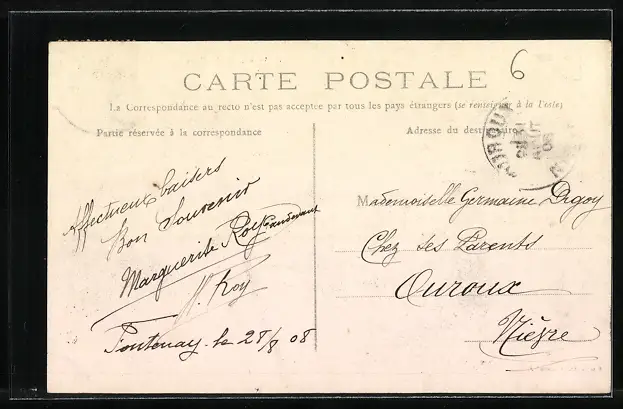 6
CARTE POSTALE
La Correspondance au recto n'est pas acceptée par tous les pays étrangers (se renseigner à la Poste)
Partie réservée à la correspondance
Adresse du destinataire
OUROUX
AOUT
08
Affectueux baisers
Bon Souvenir
Marguerite Roy
N. Roy
Fontenay, le 28/8 08
Mademoiselle Germaine Digoy
Chez ses Parents
Ouroux
Nièvre